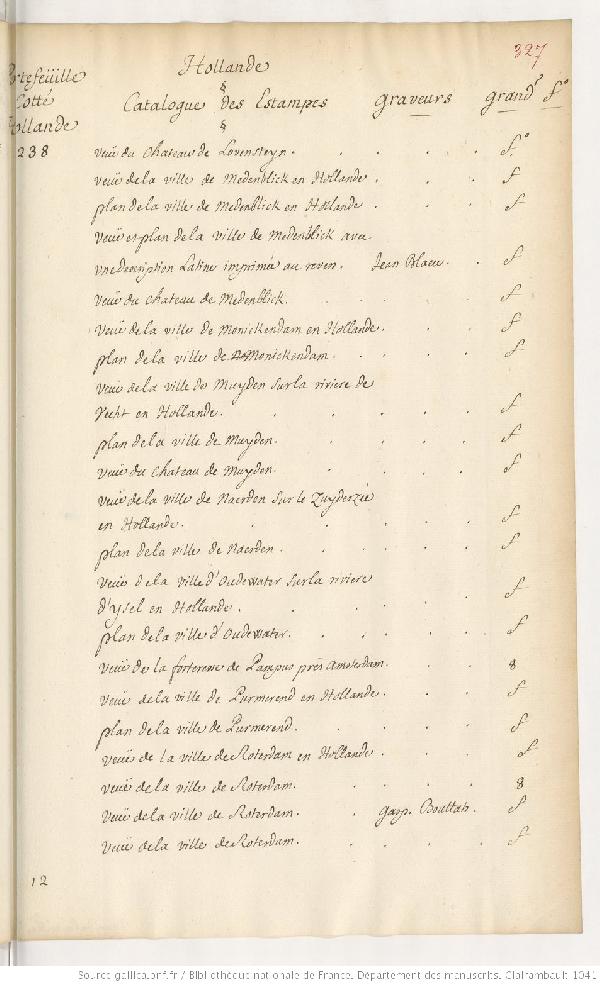 327
Hollande
§
Catalogue des Estampes graveurs grandr fo
§
Cotté
238
veüe du Chateau de Lovensteyn. fo
veüe de la ville de Medenblick en Hollande. f
plan de la ville de Medenblick en Hollande. f
veüe et plan de la ville de Medenblick avec
une description Latine imprimée au revers. Jean Blaeu. f
veüe du Chateau de Medenblick. f
veüe de la ville de Monickendam en Hollande. f
plan de la ville de Monickendam. f
veüe de la ville de Muyden sur la riviere de
Vecht en Hollande. f
plan de la ville de Muyden. f
veüe du Chateau de Muyden. f
veüe de la ville de Naerden sur le Zuyderzée
en Hollande. f
plan de la ville de Naerden. f
veüe de la ville d'Oudewater sur la riviere
d'yssel en Hollande. f
plan de la ville d'Oudewater. f
veüe de la forteresse de Pampus prés Amsterdam. 8
veüe de la ville de Purmerend en Hollande. f
plan de la ville de Purmerend. f
veüe de la ville de Roterdam en Hollande. f
veüe de la ville de Roterdam. 8
veüe de la ville de Roterdam. Gasp. Bouttats. f
veüe de la ville de Roterdam. f
12
Source gallica.bnf.fr / Bibliothèque nationale de France. Département des manuscrits. Clairambault 1041